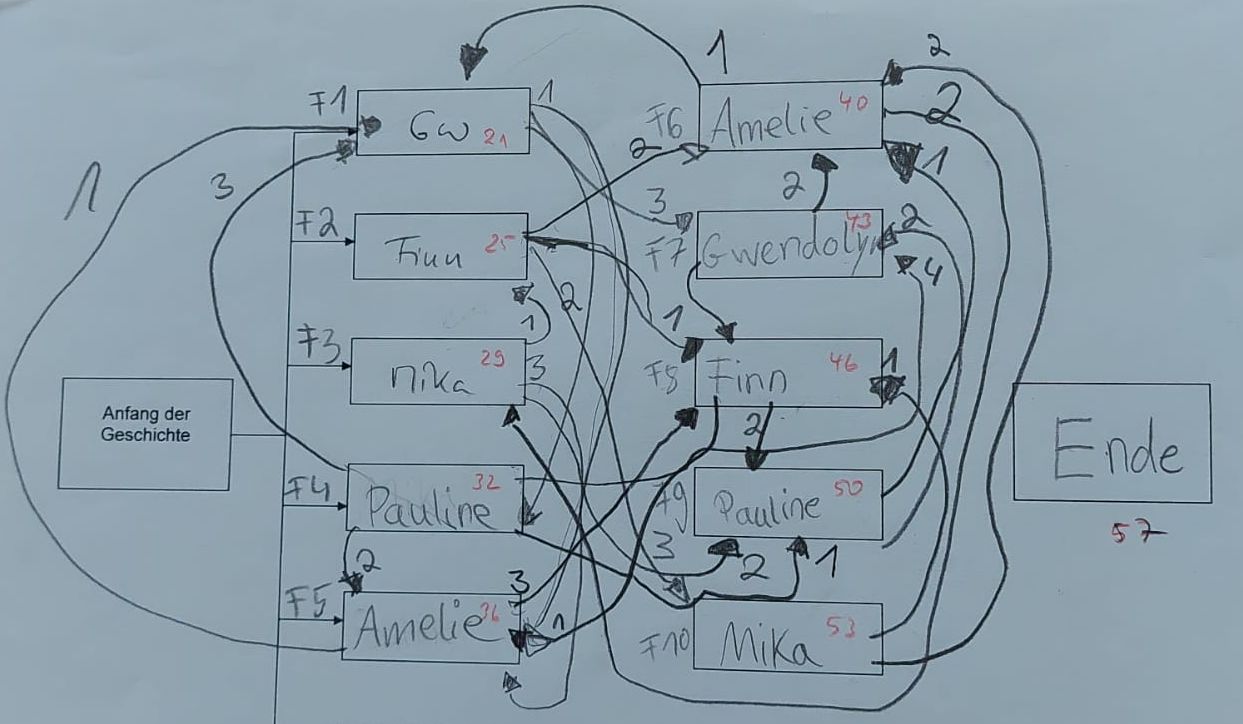 1
2
F1
GW 21
1
F6
Amelie 40
2
1
2
1
3
3
2
F2
Finn 25
F7
Gwendolyn 43
2
4
2
1
F3
nika 29
1
3
F8
Finn 46
1
2
Anfang der
Geschichte
Ende
57
F4
Pauline 32
F9
Pauline 50
2
3
2
1
F5
Amelie 36
3
1
F10
Mika 53